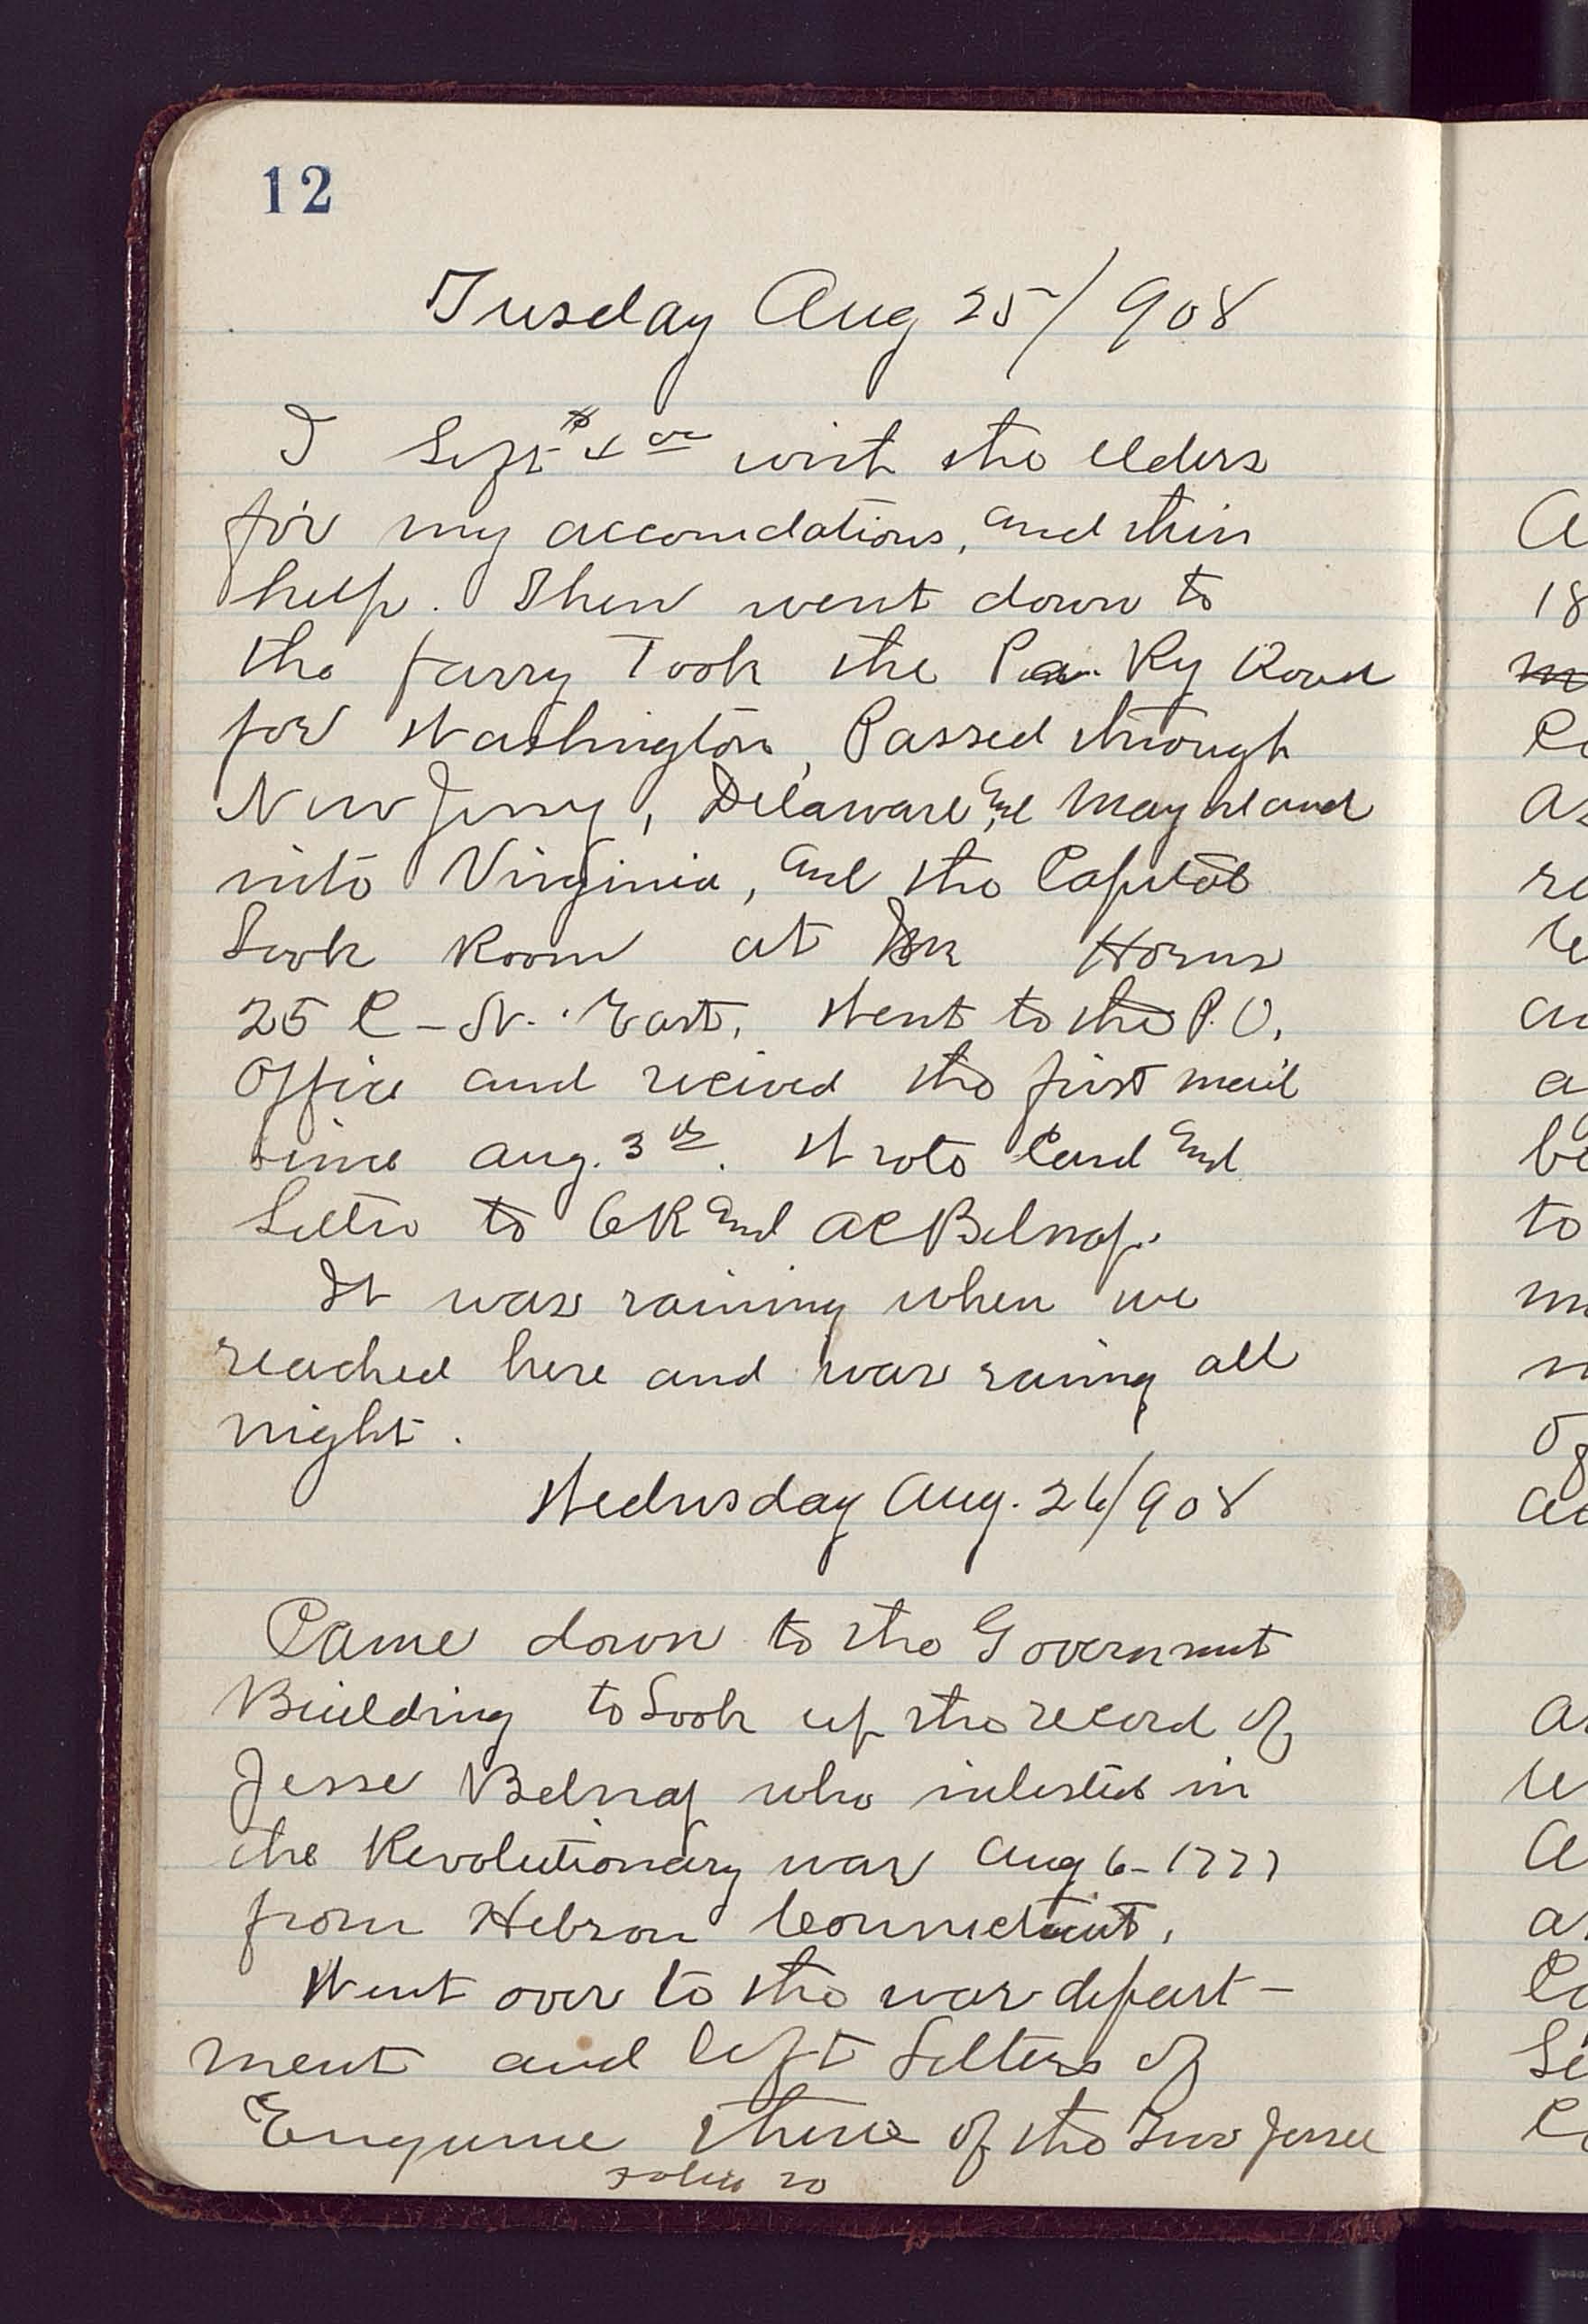 12
Tusday Aug 25/908
I Left $4.00 with the elders
for my accomdations, and thin
help. Then went down to
the farry Took the Pa. Ry Road
for Washington, Passed through
New Jersy, Delaware and Mayreland
into Virginia, and the Capital
Took Room at Horns
25 C - St. East, Went to the P.O.
Office and recived the first mail
since aug. 3th. Wrote Card and
Letter to GR and AC Belnap.
It was raining when we
reached here and was raining all
night.
Wednsday Aug. 26/908
Came down to the Government
Building to Look up the record of
Jesse Belnap who inlested in
the Revolutionary war Aug 6-1777
from Hebron Connecticut,
Went over to the war depart-
ment and left Letters of
Enqurie there of the Two Jesse